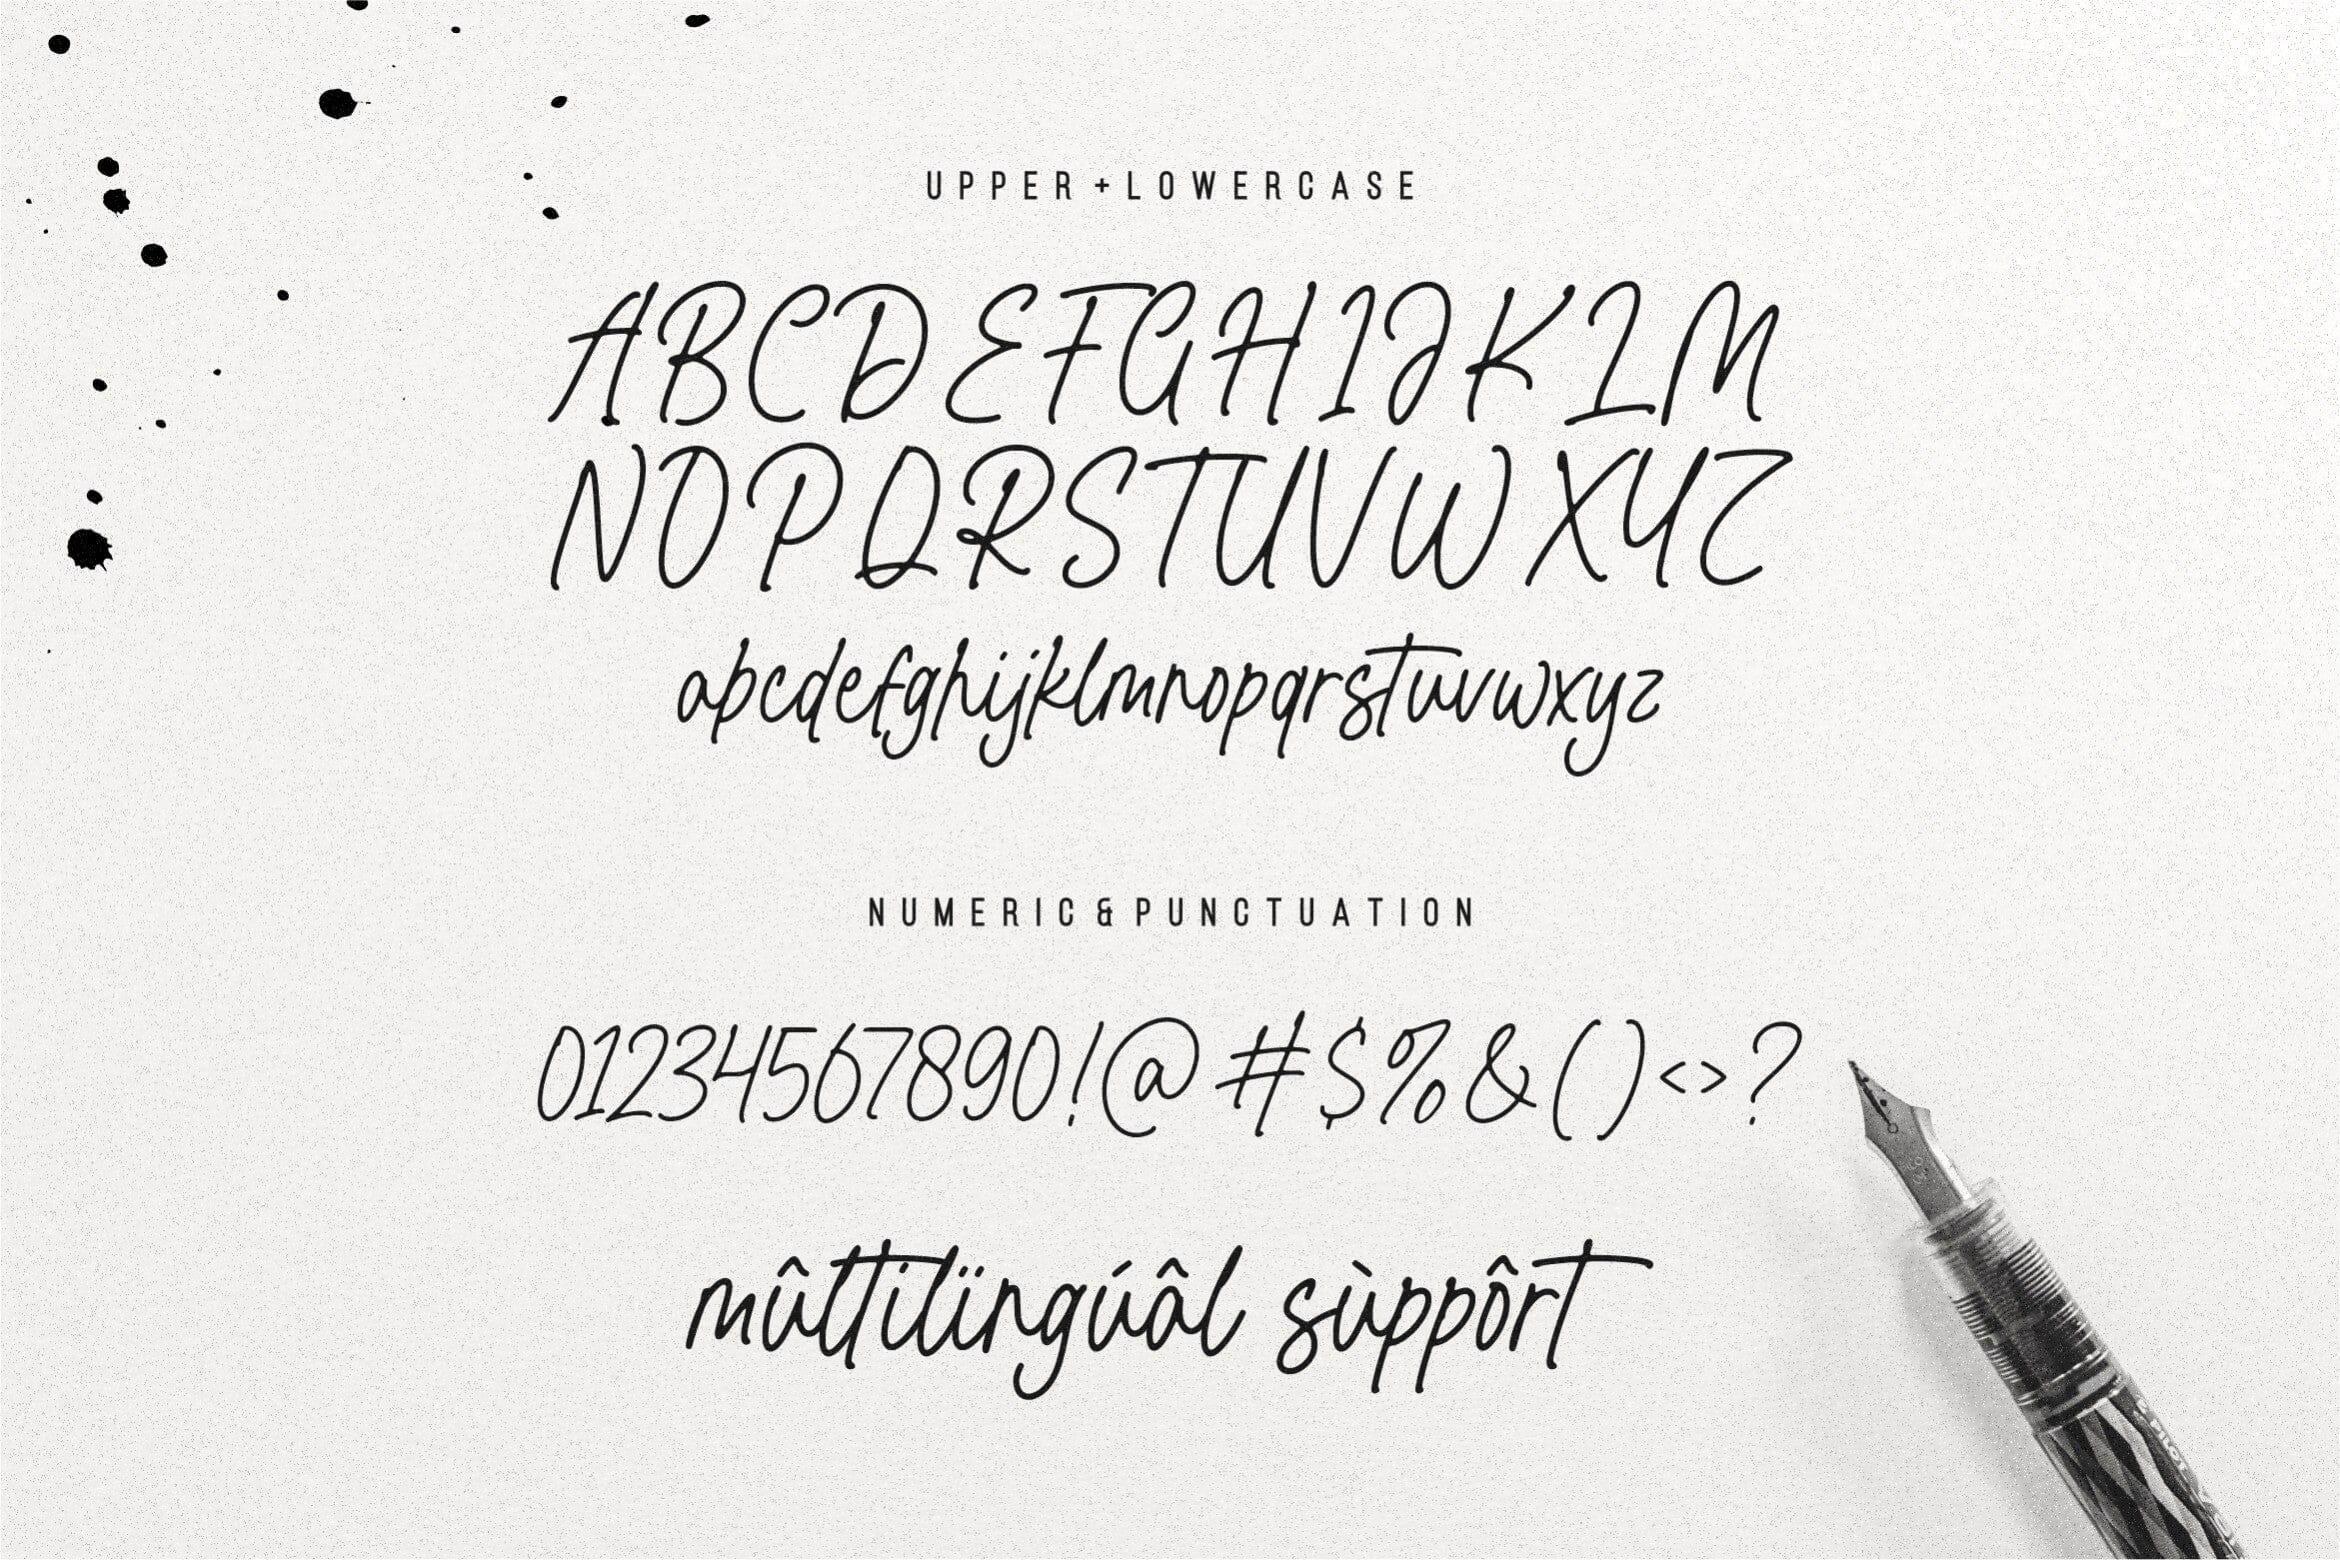 UPPER + LOWERCASE
ABCDEFGHIJKLM
NOPQRSTUVWXYZ
abcdefghijklmnopqrstuvwxyz
NUMERIC & PUNCTUATION
01234567890!@#$%&()<>?
mûltilïngúâl sùppôrt
PILOT